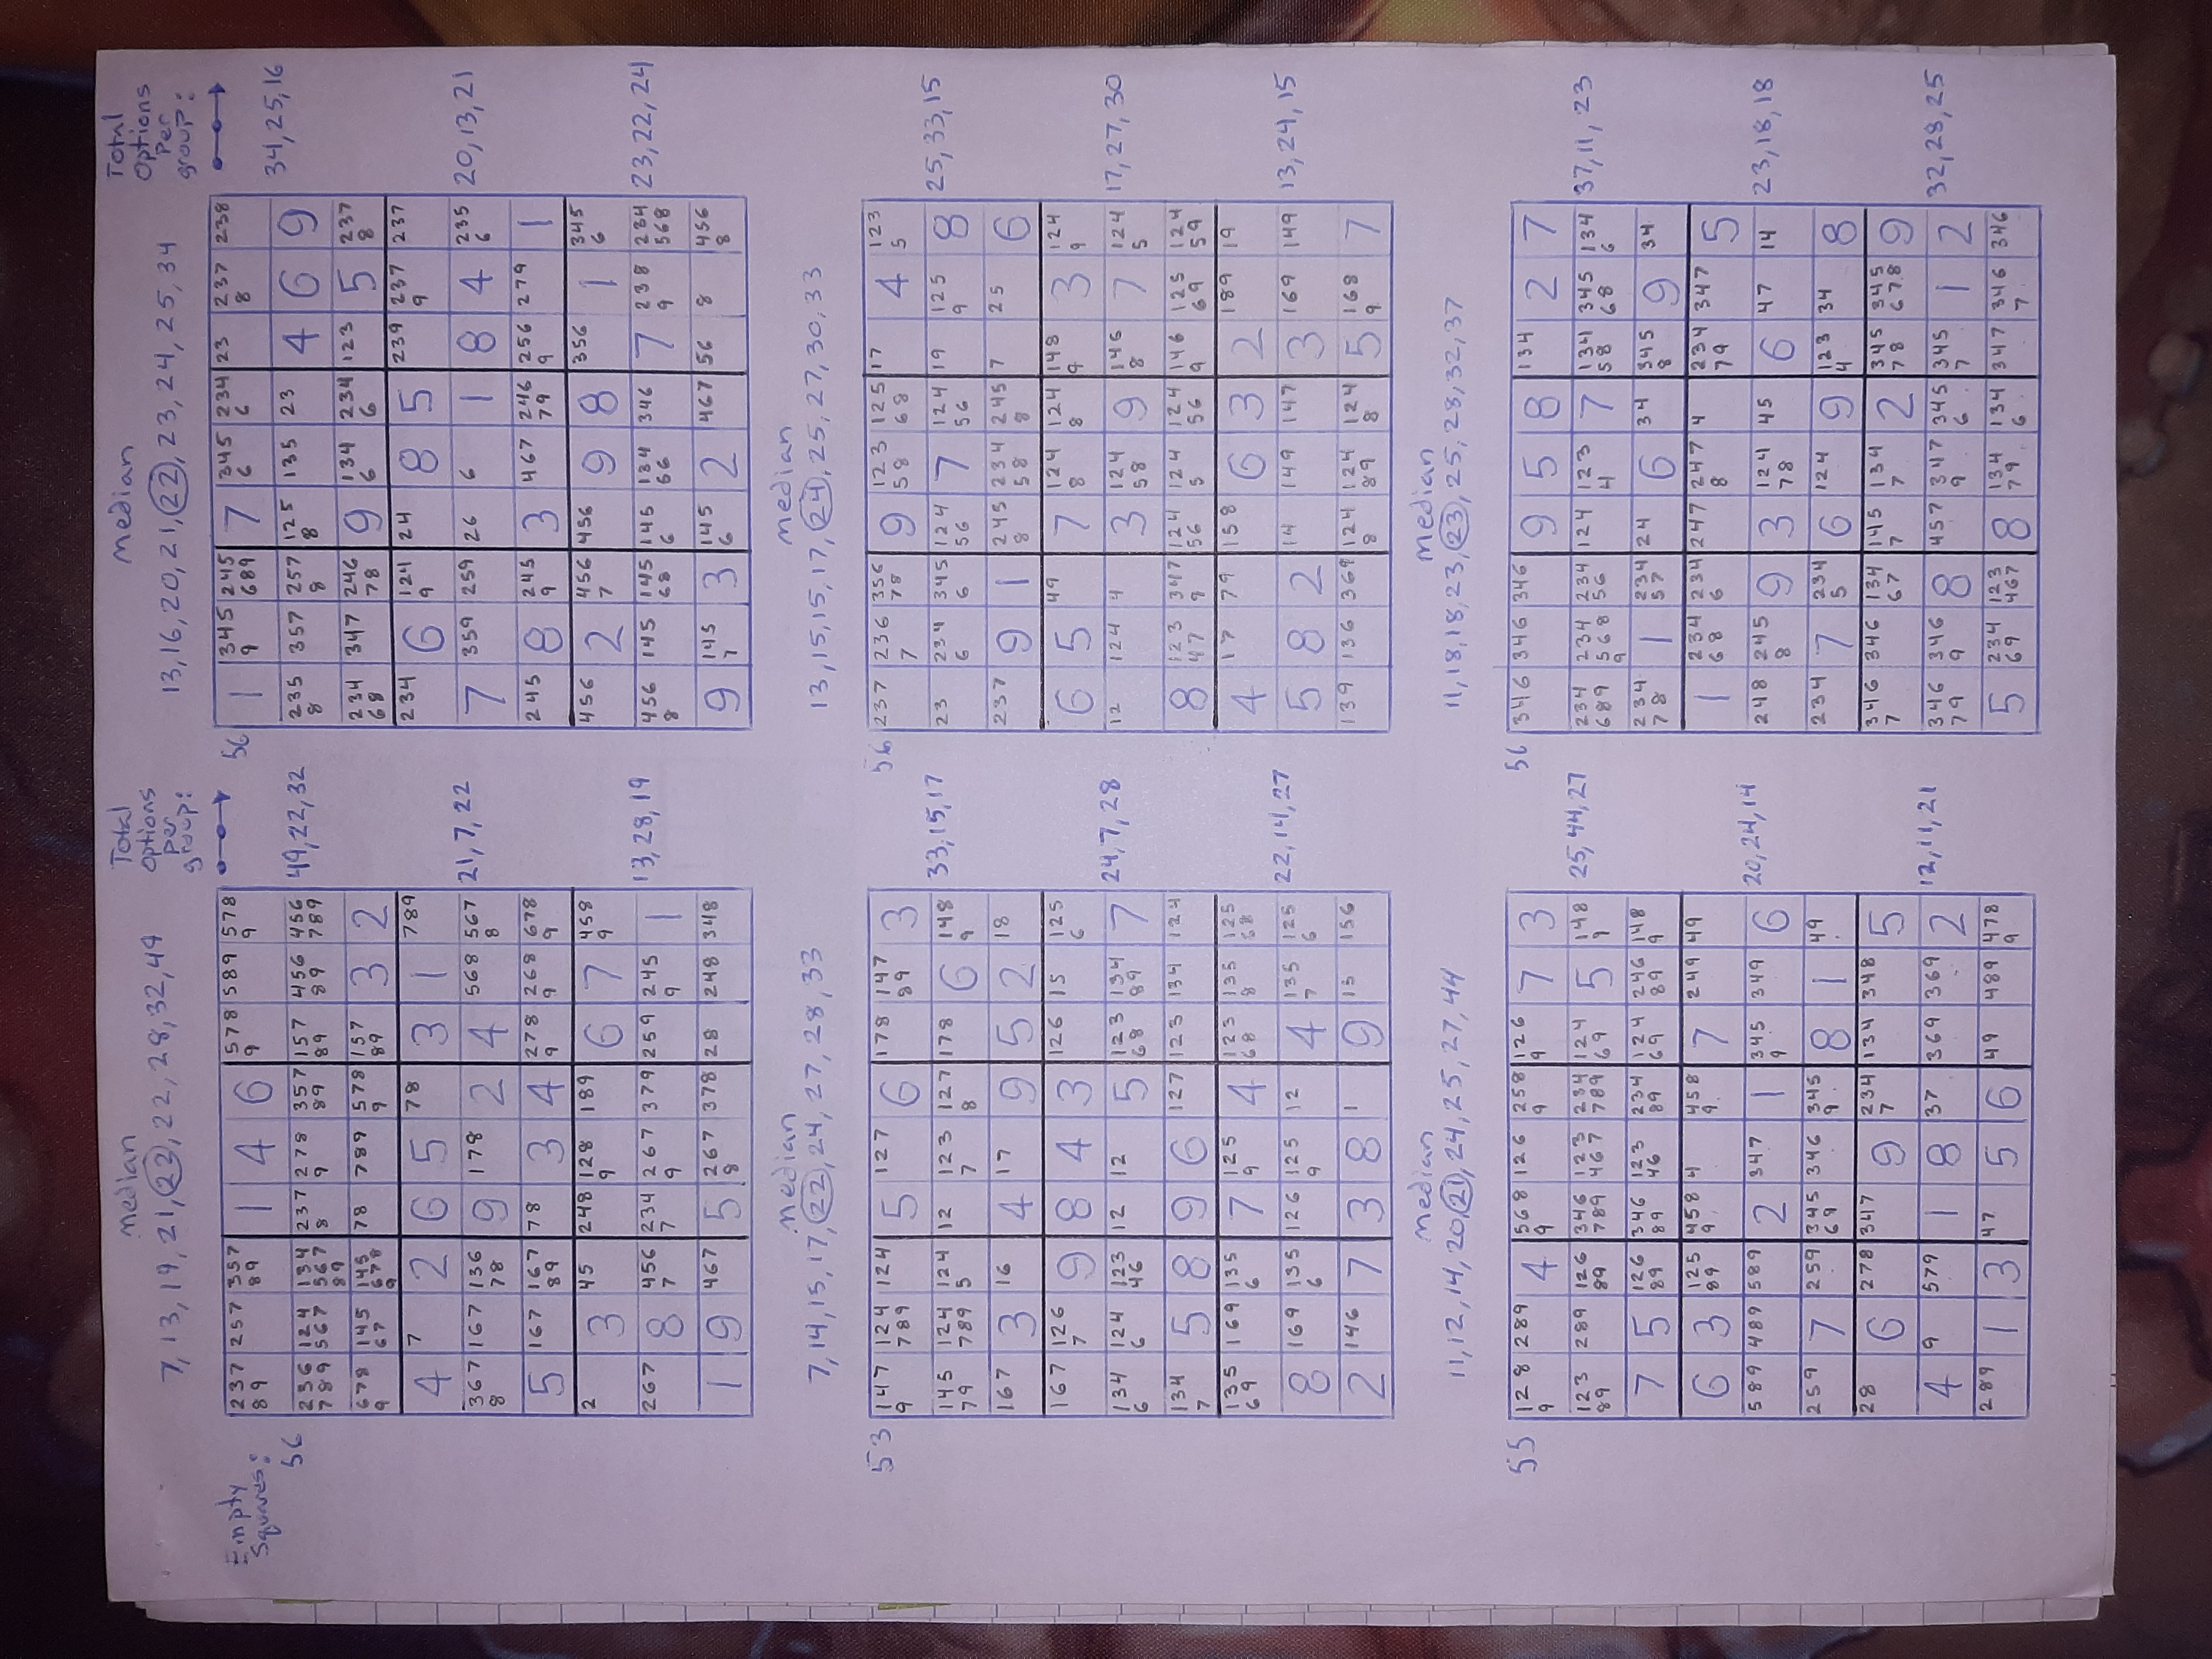 Median
Total
Options
per
group:
7, 13, 19, 21, 22, 22, 28, 32, 49
Empty
Squares:
56
237 89 | 257 | 357 89 | 1 | 4 | 6 | 578 9 | 589 | 578 9
236 789 | 124 567 | 134 567 89 | 237 8 | 278 9 | 357 89 | 157 89 | 456 89 | 456 789
49, 22, 32
678 9 | 145 67 | 145 678 9 | 78 | 789 | 578 9 | 157 89 | 3 | 2
4 | 7 | 2 | 6 | 5 | 78 | 3 | 1 | 789
367 8 | 167 | 136 78 | 9 | 178 | 2 | 4 | 568 | 567 8
21, 7, 22
5 | 167 | 167 89 | 78 | 3 | 4 | 278 9 | 268 9 | 678 9
2 | 3 | 45 | 248 | 128 9 | 189 | 6 | 7 | 458 9
267 | 8 | 456 7 | 234 7 | 267 9 | 379 | 259 | 245 9 | 1
13, 28, 19
1 | 9 | 467 | 5 | 267 8 | 378 | 28 | 248 | 348
Median
Total
Options
Per
group:
13, 16, 20, 21, 22, 23, 24, 25, 34
56
1 | 345 9 | 245 689 | 7 | 345 6 | 234 6 | 23 | 237 8 | 238
34, 25, 16
235 8 | 357 | 257 8 | 125 8 | 135 | 23 | 4 | 6 | 9
234 68 | 347 | 246 78 | 9 | 134 6 | 234 6 | 123 | 5 | 237 8
234 | 6 | 124 9 | 24 | 8 | 5 | 239 | 237 9 | 237
7 | 359 | 259 | 26 | 6 | 1 | 8 | 4 | 235 6
20, 13, 21
245 | 8 | 245 9 | 3 | 467 | 246 79 | 256 9 | 279 | 1
456 | 2 | 456 7 | 456 | 9 | 8 | 356 | 1 | 345 6
456 8 | 145 | 145 68 | 145 6 | 134 56 | 346 | 7 | 238 9 | 234 568
23, 22, 24
9 | 145 7 | 3 | 145 6 | 2 | 467 | 56 | 8 | 456 8
Median
7, 14, 15, 17, 22, 24, 27, 28, 33
53
147 9 | 124 789 | 124 | 5 | 127 | 6 | 178 | 147 89 | 3
145 79 | 124 789 | 124 5 | 12 | 123 7 | 127 8 | 178 | 6 | 148 9
33, 15, 17
167 | 3 | 16 | 4 | 17 | 9 | 5 | 2 | 18
167 | 126 7 | 9 | 8 | 4 | 3 | 126 | 15 | 125 6
134 6 | 124 6 | 123 46 | 12 | 12 | 5 | 123 68 | 134 89 | 7
24, 7, 28
134 7 | 5 | 8 | 9 | 6 | 127 | 123 | 134 | 124
135 69 | 169 | 135 6 | 7 | 125 9 | 4 | 123 68 | 135 8 | 125 68
8 | 169 | 135 6 | 126 | 125 9 | 12 | 4 | 135 7 | 125 6
22, 14, 27
2 | 146 | 7 | 3 | 8 | 1 | 9 | 15 | 156
Median
13, 15, 15, 17, 24, 25, 27, 30, 33
56
237 | 236 7 | 356 78 | 9 | 123 58 | 125 68 | 17 | 4 | 123 5
23 | 234 6 | 345 6 | 124 56 | 7 | 124 56 | 19 | 125 9 | 8
25, 33, 15
237 | 9 | 1 | 245 8 | 234 58 | 245 8 | 7 | 25 | 6
6 | 5 | 49 | 7 | 124 8 | 124 8 | 148 9 | 3 | 124 9
12 | 124 | 4 | 3 | 124 58 | 9 | 146 8 | 7 | 124 5
17, 27, 30
8 | 123 47 | 347 9 | 124 56 | 124 5 | 124 56 | 146 9 | 125 69 | 124 59
4 | 17 | 79 | 158 | 6 | 3 | 2 | 189 | 19
5 | 8 | 2 | 14 | 149 | 147 | 3 | 169 | 149
13, 24, 15
139 | 136 | 369 | 124 8 | 124 89 | 124 8 | 5 | 168 9 | 7
Median
11, 12, 14, 20, 21, 24, 25, 27, 44
55
128 9 | 289 | 4 | 568 9 | 126 | 258 9 | 126 9 | 7 | 3
123 89 | 289 | 126 89 | 346 789 | 123 467 | 234 789 | 124 69 | 5 | 148 9
25, 44, 27
7 | 5 | 126 89 | 346 89 | 123 46 | 234 89 | 124 69 | 246 89 | 148 9
6 | 3 | 125 89 | 458 9 | 4 | 458 9 | 7 | 249 | 49
589 | 489 | 589 | 2 | 347 | 1 | 345 9 | 349 | 6
20, 24, 14
259 | 7 | 259 | 345 69 | 346 | 345 9 | 8 | 1 | 49
28 | 6 | 278 | 347 | 9 | 234 7 | 134 | 348 | 5
4 | 9 | 579 | 1 | 8 | 37 | 369 | 369 | 2
12, 11, 21
289 | 1 | 3 | 47 | 5 | 6 | 49 | 489 | 478 9
Median
11, 18, 18, 23, 23, 25, 28, 32, 37
56
346 | 346 | 346 | 9 | 5 | 8 | 134 | 2 | 7
234 689 | 234 568 9 | 234 56 | 124 | 123 4 | 7 | 134 58 | 345 68 | 134 6
37, 11, 23
234 78 | 1 | 234 57 | 24 | 6 | 34 | 345 8 | 9 | 34
1 | 234 68 | 234 6 | 247 | 247 8 | 4 | 234 79 | 347 | 5
248 | 245 8 | 9 | 3 | 124 78 | 45 | 6 | 47 | 14
23, 18, 18
234 | 7 | 234 5 | 6 | 124 | 9 | 123 4 | 34 | 8
346 7 | 346 | 134 67 | 145 7 | 134 7 | 2 | 345 78 | 345 678 | 9
346 79 | 346 9 | 8 | 457 | 347 9 | 345 6 | 345 7 | 1 | 2
32, 28, 25
5 | 234 69 | 123 467 | 8 | 134 79 | 134 6 | 347 | 346 7 | 346